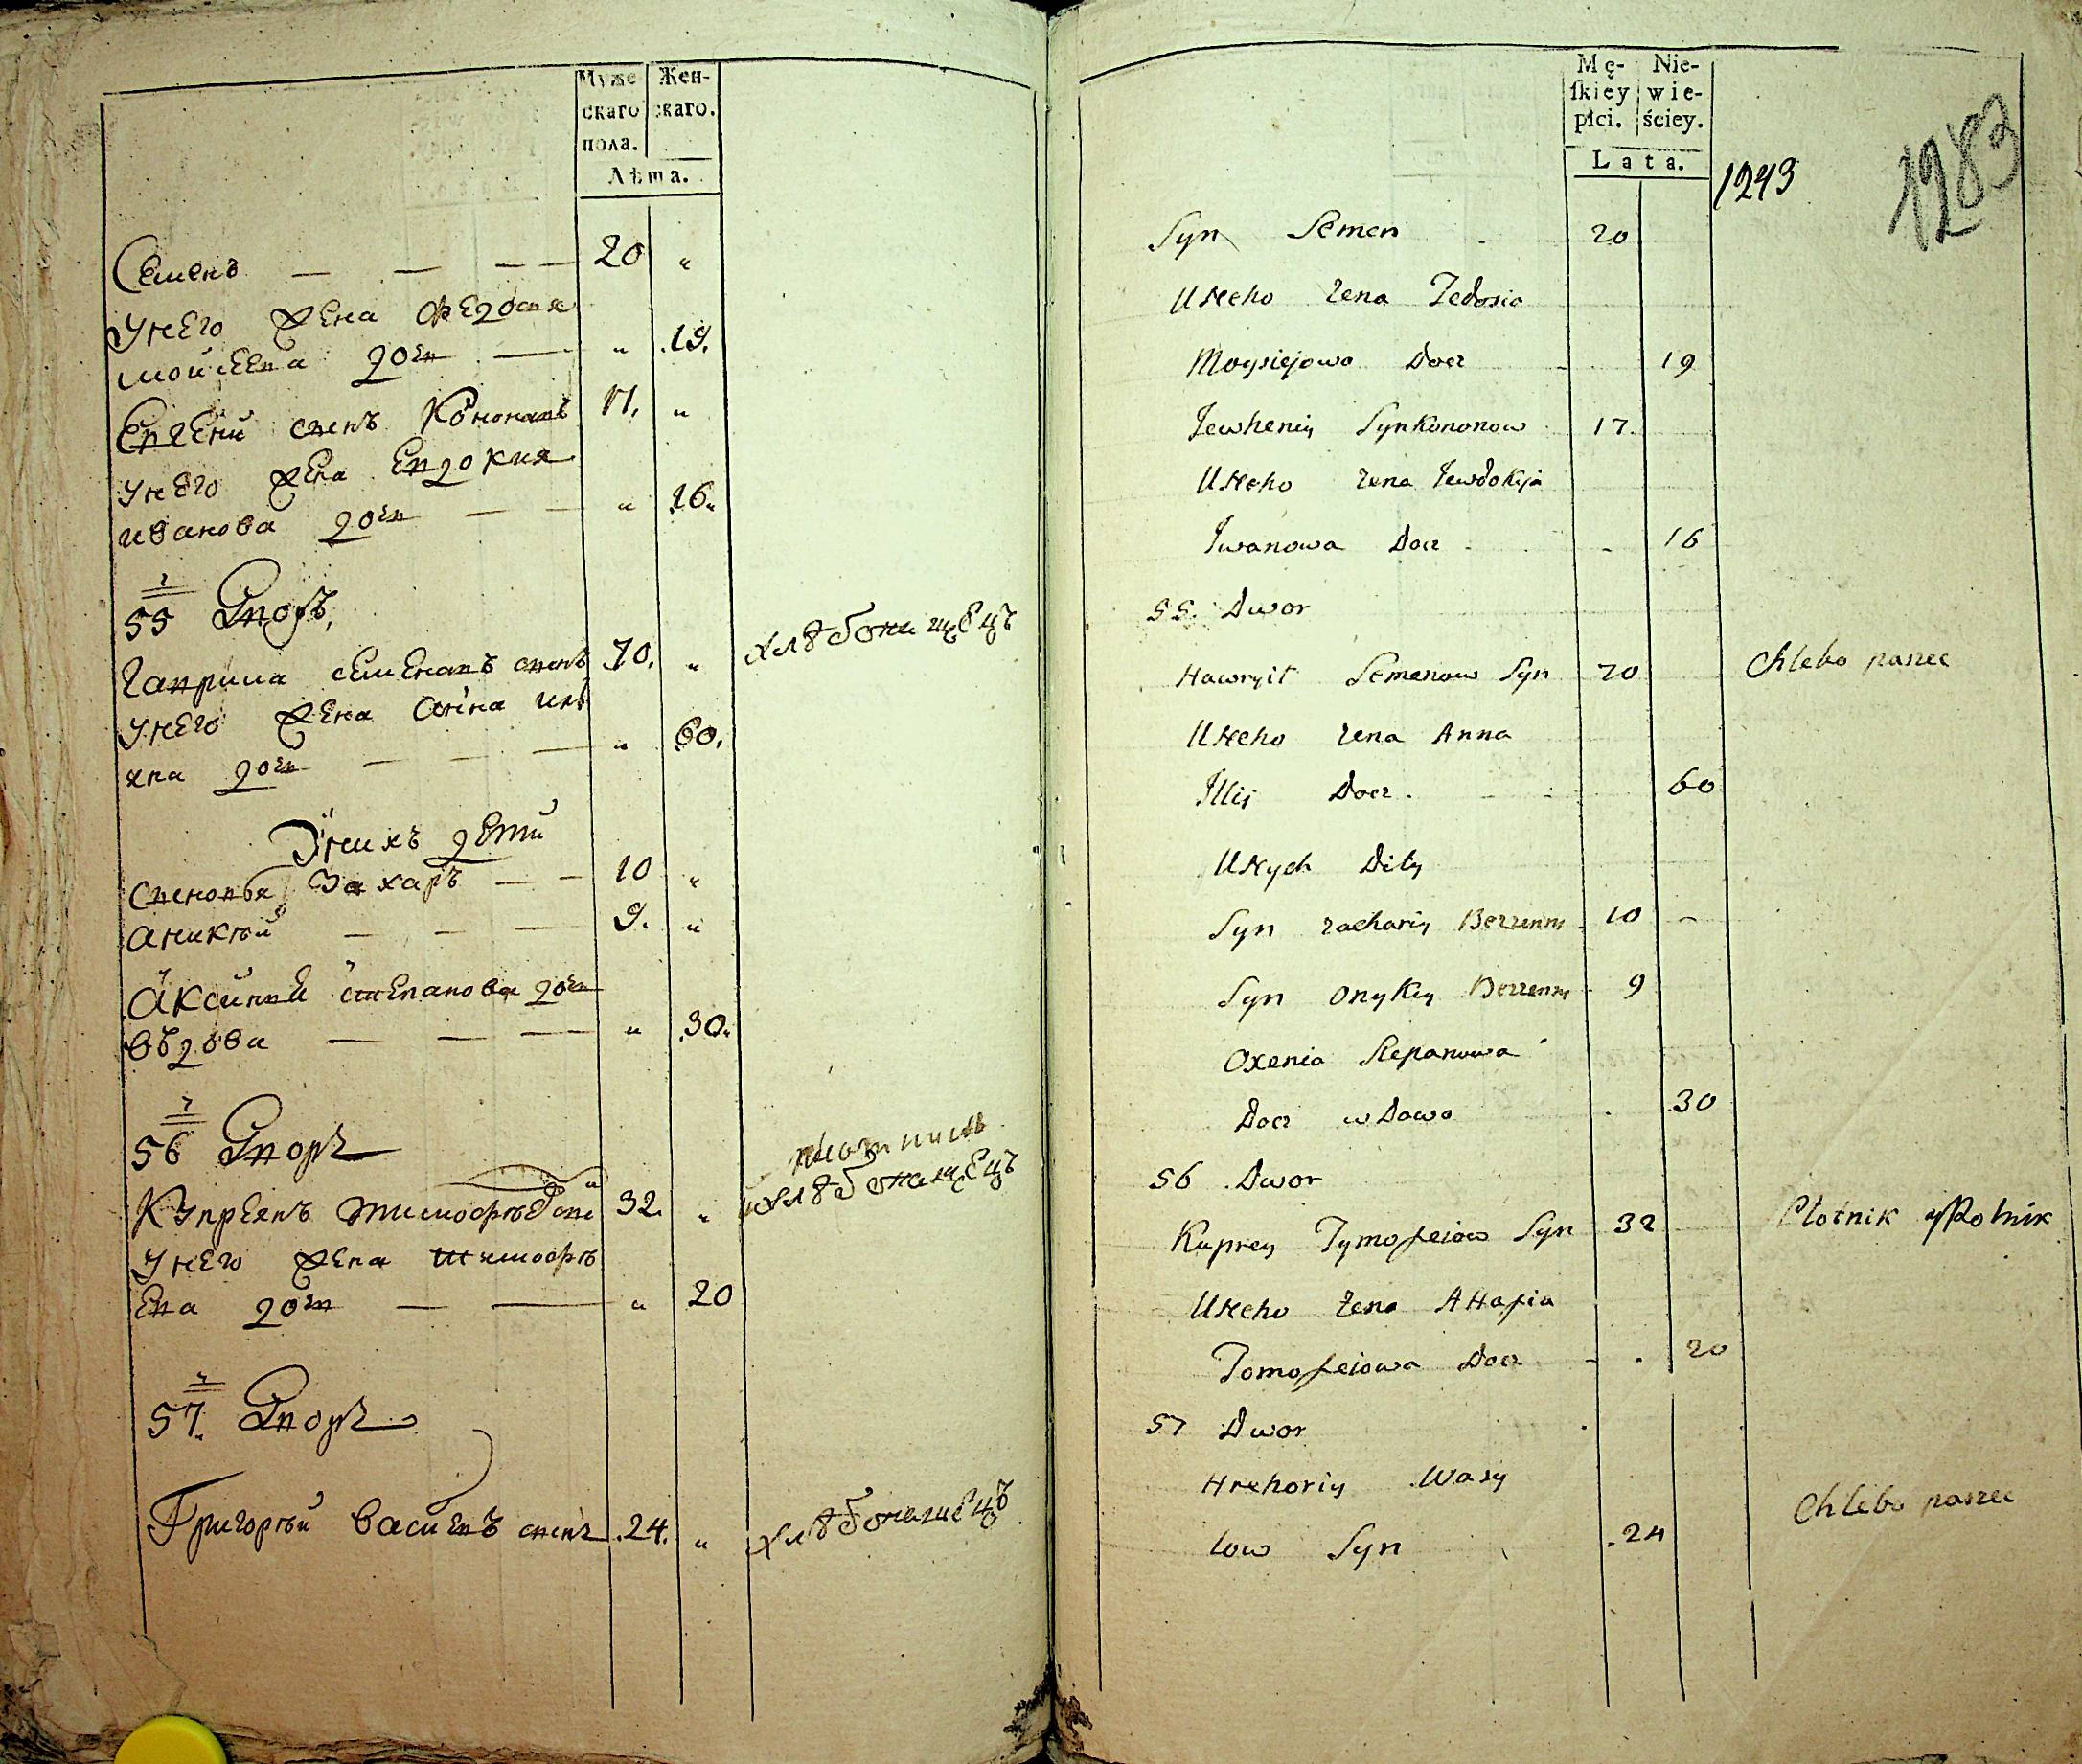 Муже Жен-
скаго скаго.
пола.
Лѣта.
Семенъ — — — 20 „
Унего жена Федосия
мойсеева дочь — „ 19.
Евгени сынъ Кононавъ 17. „
унего жена Евдокия
иванова дочь — — „ 16.
55 Дворъ
Гаврила семенавъ сынъ 70. „ хлѣбопашецъ
унего жена анна илі
хва дочь — — — „ 60.
Унихъ дети
Сыновья Захаръ — — 10 „
аникѣй — — — 9. „
аксиния степанова дочь
въдова — — — „ 30.
56 Дворъ
плотникъ
Купреянъ тимофѣевъ сынъ 32. „ и хлѣбопашецъ
Унего жена тимофѣ
ева дочь — — „ 20
57. Дворъ
Григорѣй Васильевъ сынъ .24. „ хлѣбопашецъ
Mę- Nie-
ſkiey wie-
płci. ściey.
Lata.
1243
1283
Syn Semen 20
UNeho Zena Fedosia
Moysiejowa Docz 19
Jewhenij Syn Kononow 17.
UNeho Zena Jewdokija
Jwanowa Docz 16
55. Dwor
Hawryił Semenow Syn 70 Chlebo paszec
UNeho Zena Anna
Illij Docz 60
UNych Dity
Syn Zacharij Bezzenny 10
Syn Onykij Bezzenny 9
Oxenia Stepanowa
Docz wDowa 30
56 Dwor
Kuprey Tymofeiow Syn 32 Plotnik y Rolnik
UNeho Zena AHafia
Tomofeiowa Docz 20
57 Dwor
Hrehorij Wasy
low Syn .24 Chlebo paszec